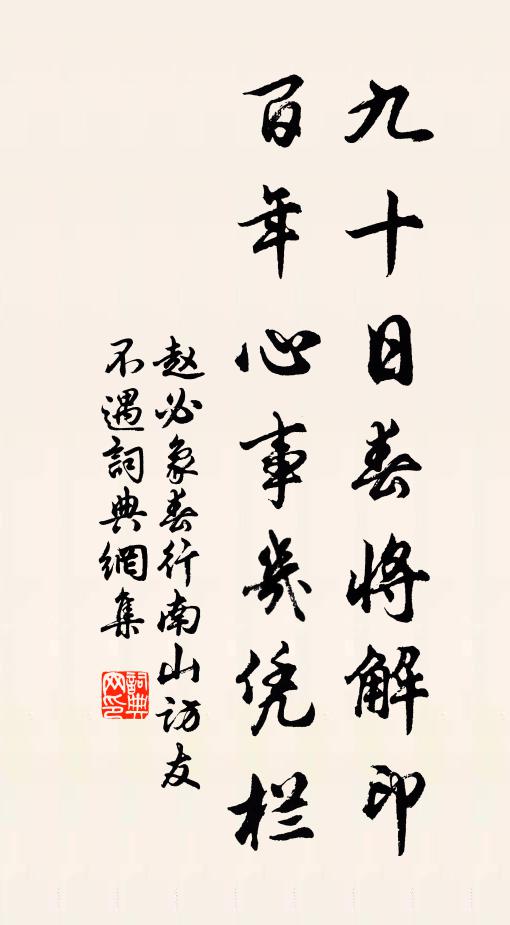 九十日春将解印
百年心事几凭栏
赵必象春行南山访友
不遇詞典網集
詞典网印